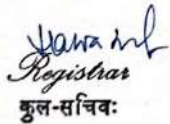 Registrar
कुल-सचिवः